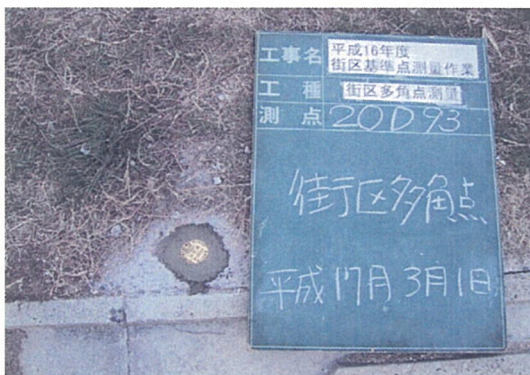 工事名 平成16年度
街区基準点測量作業
工種 街区多角点測量
測点 20D93
街区多角点
平成17月3月1日